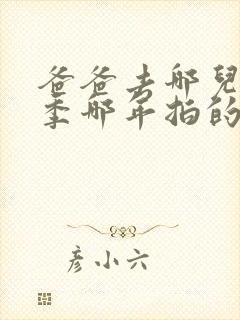 爸爸去哪兒
季哪年拍的
彥小六